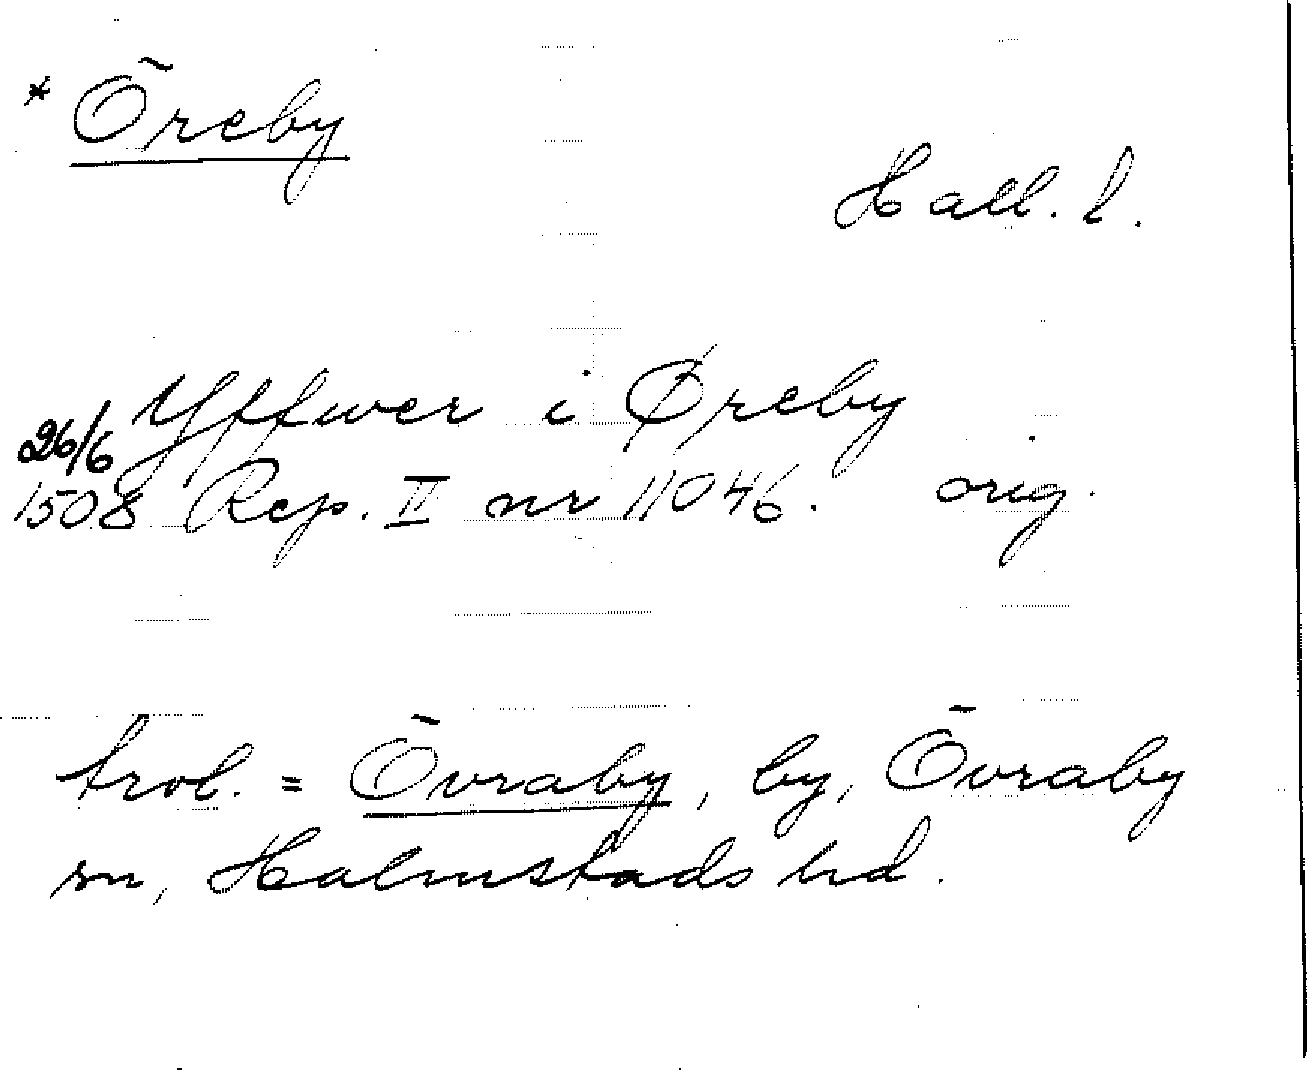 * Öreby
Hall. l.
Yffwer i Øreby
26/6
1508 Rep. II nr 11046. orig.
trol. = Övraby, by, Övraby
sn, Halmstads hd.